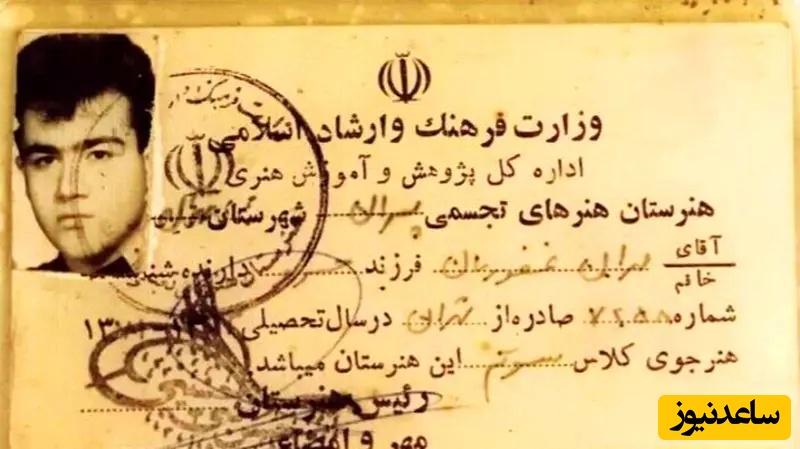 وزارت فرهنگ وارشاد اسلامی
اداره کل پژوهش و آموزش هنری
هنرستان هنرهای تجسمی پسران شهرستان
آقای
خانم
مهران غفوریان فرزند دارنده شناسنامه
شماره صادره از تهران در سال تحصیلی
هنرجوی کلاس سوم این هنرستان میباشد
رئیس هنرستان
مهر و امضاء
ساعدنیوز